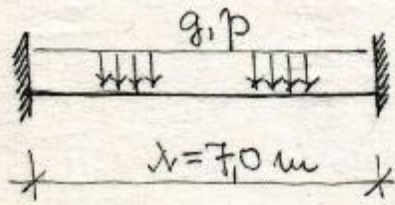 g, p
λ = 7,0 m